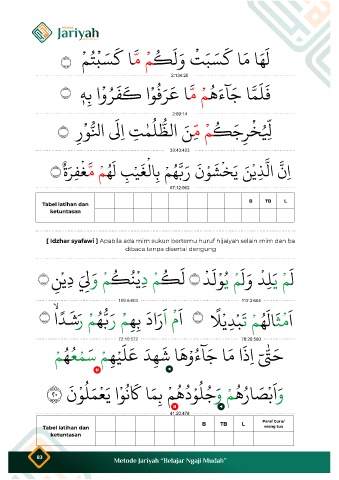 Metode
Jariyah
لَهَا مَا كَسَبَتْ وَلَكُمْ مَّا كَسَبْتُمْ
2:134:20
فَلَمَّا جَآءَهُمْ مَّا عَرَفُوْا كَفَرُوْا بِهٖ
2:89:14
لِيُخْرِجَكُمْ مِّنَ الظُّلُمٰتِ اِلَى النُّوْرِ
33:43:423
اِنَّ الَّذِيْنَ يَخْشَوْنَ رَبَّهُمْ بِالْغَيْبِ لَهُمْ مَّغْفِرَةٌ
67:12:562
Tabel latihan dan ketuntasan
B TB L
[ Idzhar syafawi ] Apabila ada mim sukun bertemu huruf hijaiyah selain mim dan ba
dibaca tanpa disertai dengung
لَمْ يَلِدْ وَلَمْ يُوْلَدْ لَكُمْ دِيْنُكُمْ وَلِيَ دِيْنِ
اَمْثَالَهُمْ تَبْدِيْلًا اَمْ اَرَادَ بِهِمْ رَبُّهُمْ رَشَدًا
حَتّٰىٓ اِذَا مَا جَآءُوْهَا شَهِدَ عَلَيْهِمْ سَمْعُهُمْ
وَاَبْصَارُهُمْ وَجُلُوْدُهُمْ بِمَا كَانُوْا يَعْمَلُوْنَ ٢٠
41:20:478
Tabel latihan dan ketuntasan
B TB L Paraf Guru/ orang tua
83
Metode Jariyah "Belajar Ngaji Mudah"